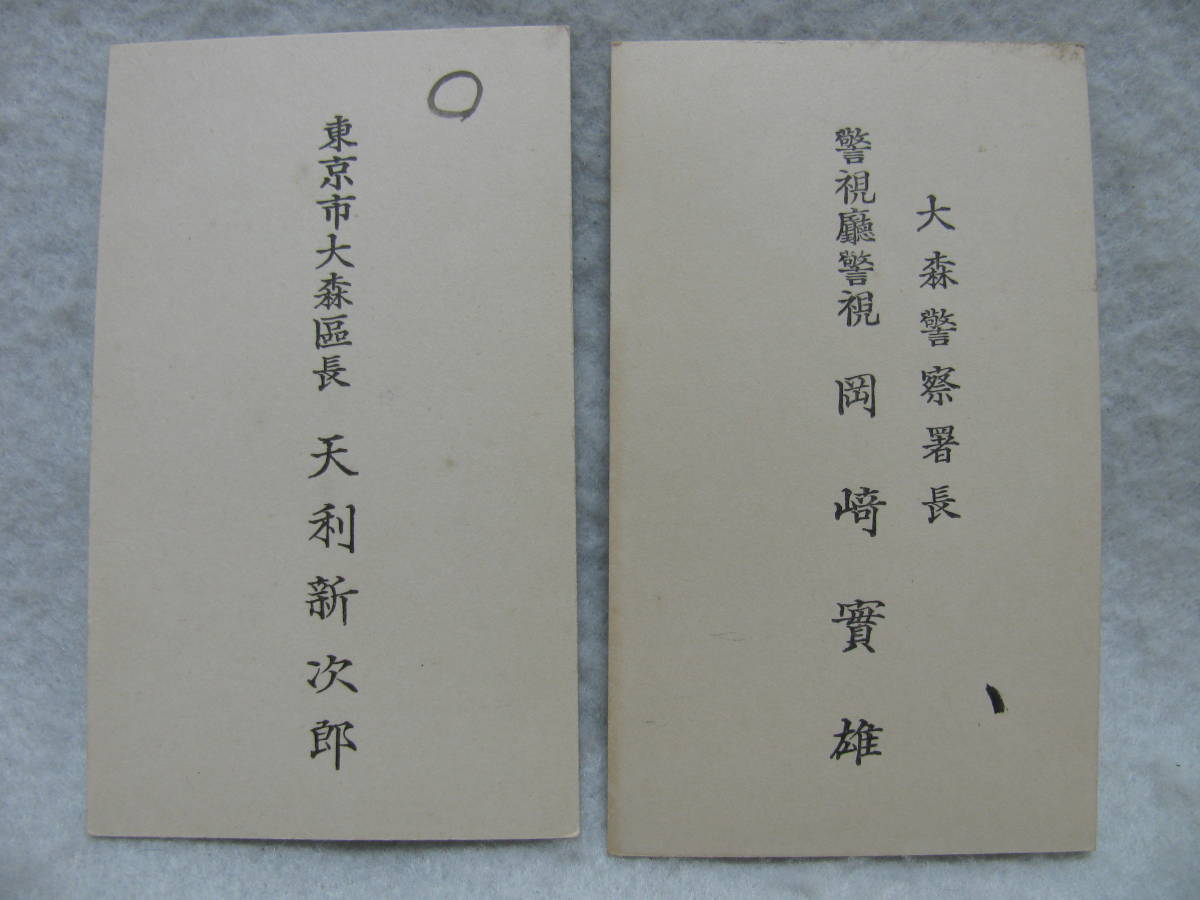 東京市大森區長　天利新次郎
大森警察署長
警視廳警視　岡﨑實雄